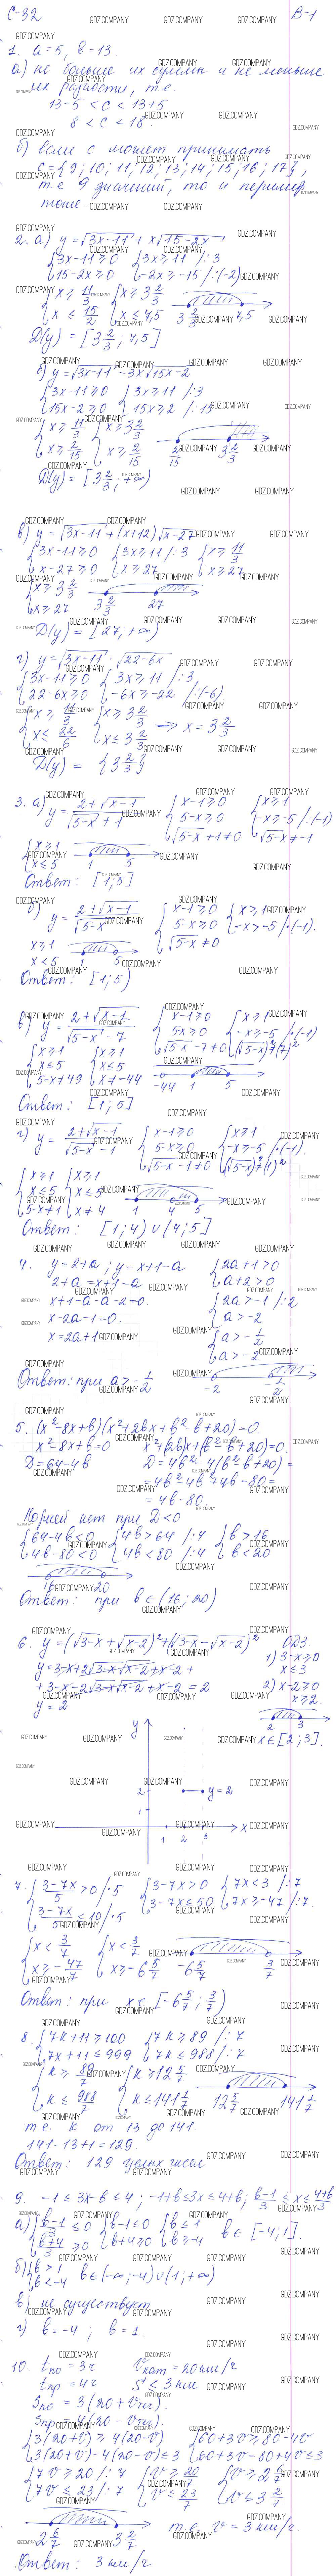 С-32 В-1
1. a=5, b=13.
а) не больше их суммы и не меньше
их разности, т.е.
13-5 < c < 13+5
8 < c < 18.
б) если с может принимать
c={9; 10; 11; 12; 13; 14; 15; 16; 17},
т.е 9 значений, то и периметр
тоже.
2. а) y = √(3x-11) + x√(15-2x)
{3x-11≥0 {3x≥11 /:3
{15-2x≥0 {-2x≥-15 /:(-2)
{x≥11/3 {x≥3 2/3
{x≤15/2 {x≤7,5
3 2/3 7,5
D(y) = [3 2/3; 7,5]
б) y = √(3x-11) - 3x√(15x-2)
{3x-11≥0 {3x≥11 /:3
{15x-2≥0 {15x≥2 /:15
{x≥11/3 {x≥3 2/3
{x≥2/15 {x≥2/15
2/15 3 2/3
D(y) = [3 2/3; +∞)
в) y = √(3x-11) + (x+12)√(x-27)
{3x-11≥0 {3x≥11 /:3 {x≥11/3
{x-27≥0 {x≥27 {x≥27
{x≥3 2/3
{x≥27
3 2/3 27
D(y) = [27; +∞)
г) y = √(3x-11) · √(22-6x)
{3x-11≥0 {3x≥11 /:3
{22-6x≥0 {-6x≥-22 /:(-6)
{x≥11/3 {x≥3 2/3
{x≤22/6 {x≤3 2/3 ⇒ x = 3 2/3
D(y) = {3 2/3}
3. а) y = (2+√(x-1))/(√(5-x)+1) {x-1≥0 {x≥1
{5-x≥0 {-x≥-5 /:(-1)
{√(5-x)+1≠0 {√(5-x)≠-1
{x≥1
{x≤5
1 5
Ответ: [1; 5]
б) y = (2+√(x-1))/√(5-x) {x-1≥0 {x≥1
{5-x≥0 {-x>-5 /·(-1).
{√(5-x)≠0
x≥1
x<5
1 5
Ответ: [1; 5)
в) y = (2+√(x-1))/(√(5-x)-7) {x-1≥0 {x≥1
{5x≥0 {-x≥-5 /·(-1)
{√(5-x)-7≠0 {(√(5-x))²≠(7)²
{x≥1 {x≥1
{x≤5 {x≤5
{5-x≠49 {x≠-44
-44 1 5
Ответ: [1; 5]
г) y = (2+√(x-1))/(√(5-x)-1) {x-1≥0 {x≥1
{5-x≥0 {-x≥-5 /·(-1).
{√(5-x)-1≠0 {(√(5-x))²≠(1)²
{x≥1 {x≥1
{x≤5 {x≤5
{5-x≠1 {x≠4
1 4 5
Ответ: [1; 4) ∪ (4; 5]
4. y=2+a; y=x+1-a {2a+1>0
2+a=x+1-a {a+2>0
x+1-a-a-2=0. {2a>-1 /:2
x-2a-1=0. {a>-2
x=2a+1 {a>-1/2
{a>-2
-2 -1/2
Ответ: при a>-1/2
5. (x²-8x+b)(x²+2bx+b²-b+20)=0.
x²-8x+b=0 x²+(2b)x+(b²-b+20)=0.
D=64-4b D=4b²-4(b²-b+20)=
=4b²-4b²+4b-80=
=4b-80.
Корней нет при D<0
{64-4b<0 {4b>64 /:4 {b>16
{4b-80<0 {4b<80 /:4 {b<20
16 20
Ответ: при b∈(16; 20)
6. y=(√(3-x)+√(x-2))²+(√(3-x)-√(x-2))² ОДЗ.
y=3-x+2√(3-x)√(x-2)+x-2+ 1) 3-x≥0
+3-x-2√(3-x)√(x-2)+x-2=2 x≤3
y=2 2) x-2≥0
x≥2.
2 3
x∈[2; 3].
y
2 y=2
1
1 2 3 x
7. {(3-7x)/5>0 /·5 {3-7x>0 {7x<3 /:7
{(3-7x)/5≤10 /·5 {3-7x≤50 {7x≥-47 /:7.
{x<3/7 {x<3/7
{x≥-47/7 {x≥-6 5/7
-6 5/7 3/7
Ответ: при x∈[-6 5/7; 3/7)
8. {7k+11≥100 {7k≥89 /:7
{7x+11≤999 {7k≤988 /:7
{k≥89/7 {k≥12 5/7
{k≤988/7 {k≤141 1/7
12 5/7 141 1/7
т.е. k от 13 до 141.
141-13+1=129.
Ответ: 129 целых чисел
9. -1≤3x-b≤4; -1+b≤3x≤4+b; (b-1)/3≤x≤(4+b)/3
а) {(b-1)/3≤0 {b-1≤0 {b≤1 b∈[-4; 1].
{(b+4)/3≥0 {b+4≥0 {b≥-4
б) {b>1
{b<-4 b∈(-∞; -4)∪(1; +∞)
в) не существует
г) b=-4; b=1.
10. tпо=3ч Vкат=20км/ч
tпр=4ч S≤3км
Sпо=3(20+Vтеч).
Sпр=4(20-Vтеч).
{3(20+V)≥4(20-V) {60+3V≥80-4V
{3(20+V)-4(20-V)≤3 {60+3V-80+4V≤3
{7V≥20 /:7 {V≥20/7 {V≥2 6/7
{7V≤23 /:7 {V≤23/7 {V≤3 2/7
2 6/7 3 2/7 т.е. V=3км/ч.
Ответ: 3 км/ч